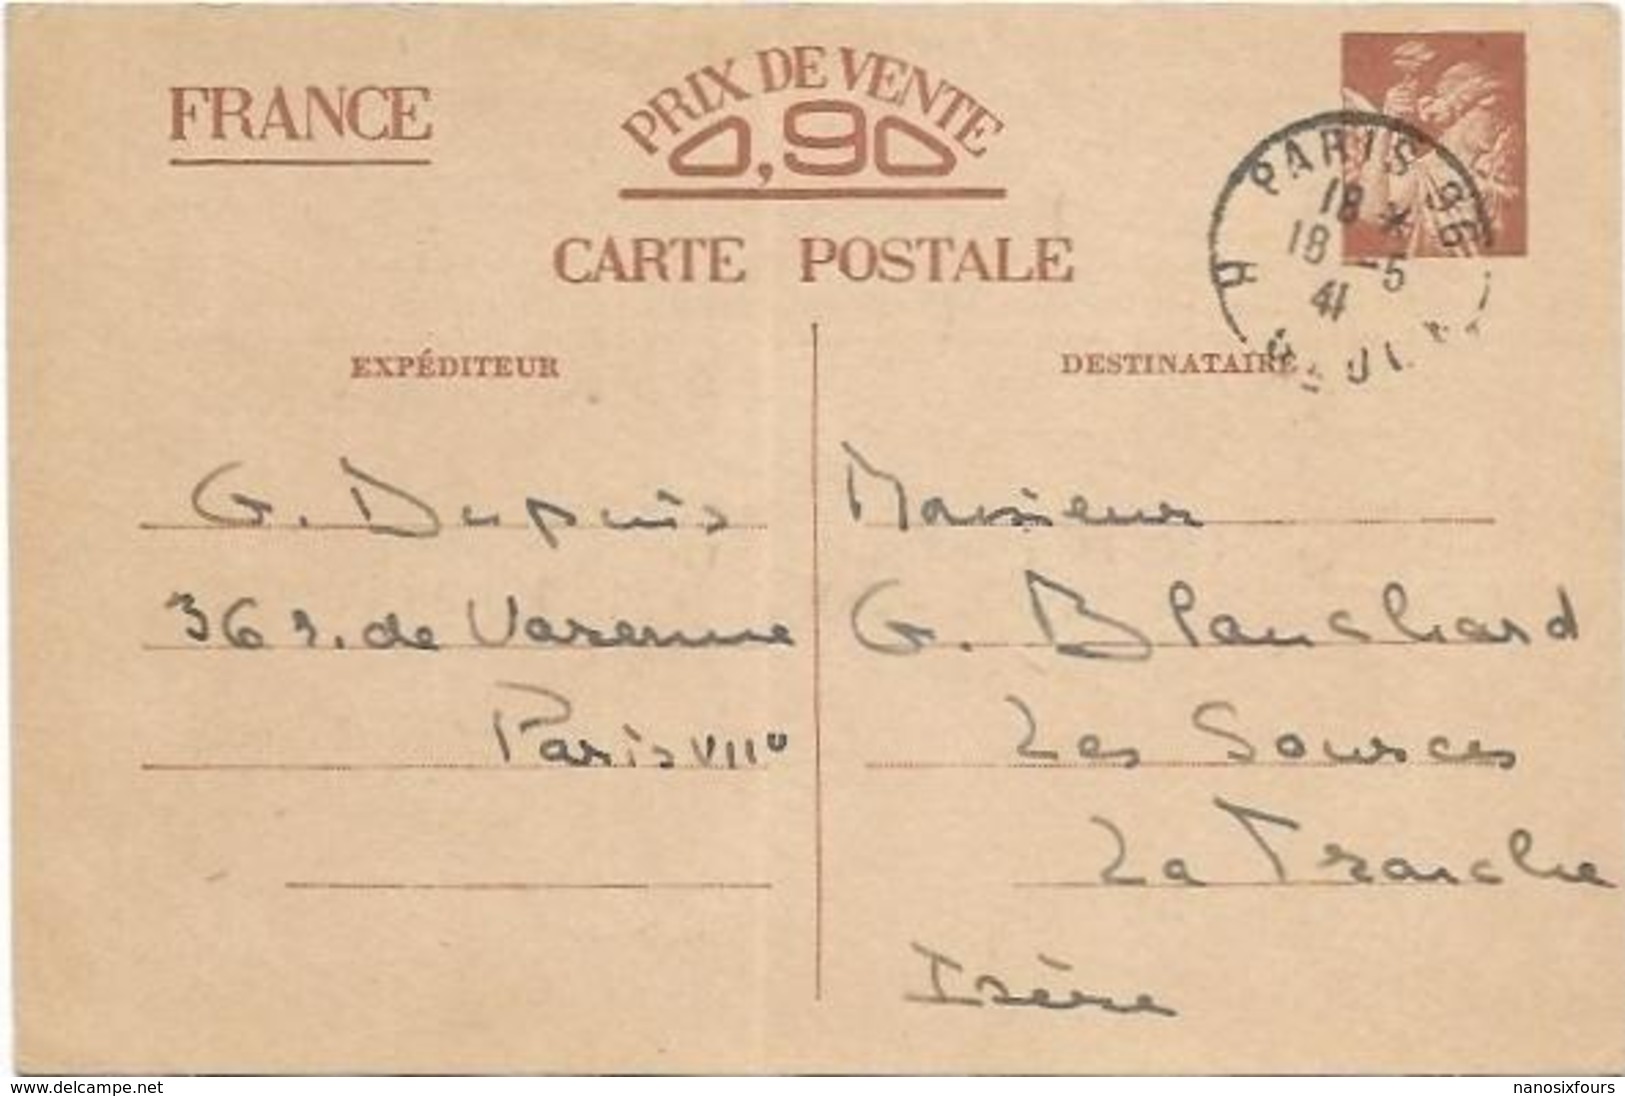 FRANCE
PRIX DE VENTE
0,90
CARTE POSTALE
PARIS
18 *
18 -5
41
EXPÉDITEUR
G. Dupuis
36 r. de Varenne
Paris VIIe
DESTINATAIRE
Monsieur
G. Blanchard
Les Sources
La Tronche
Isère
www.delcampe.net
nanosixfours